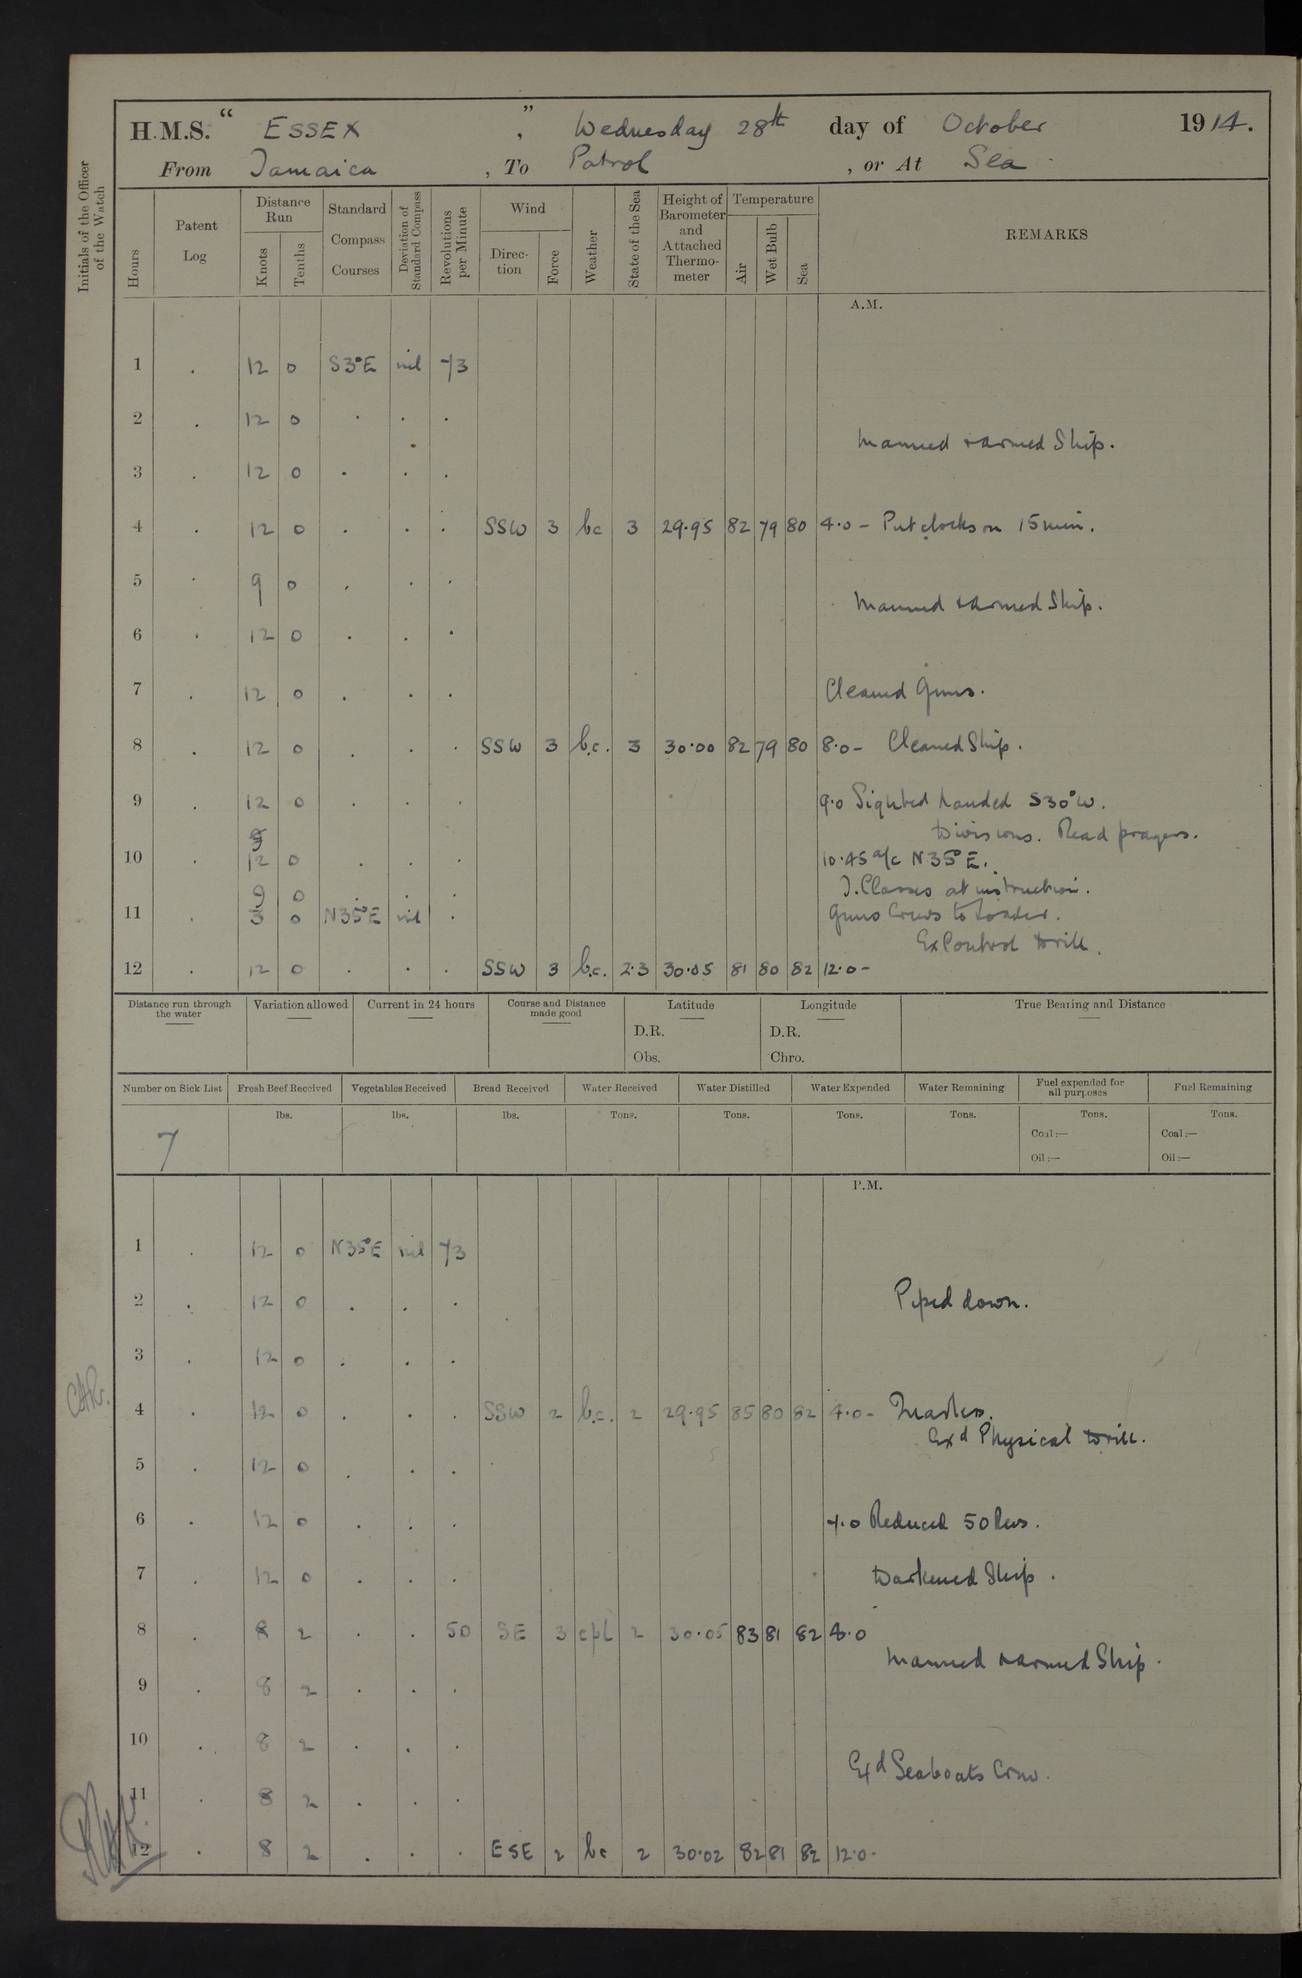 H.M.S. “ ESSEX ” , Wednesday 28th day of October 1914.
From Jamaica , To Patrol , or At Sea
Initials of the Officer of the Watch
Hours Patent Log Distance Run Knots Tenths Standard Compass Courses Deviation of Standard Compass Revolutions per Minute Wind Direc-tion Force Weather State of the Sea Height of Barometer and Attached Thermo-meter Temperature Air Wet Bulb Sea REMARKS
A.M.
1 . 12 0 S3°E nil 73
2 . 12 0 . . .
Manned & armed Ship.
3 . 12 0 . . .
4 . 12 0 . . . SSW 3 bc 3 29.95 82 79 80 4.0 - Put clocks on 15 min.
5 . 9 0 . . .
Manned & armed Ship.
6 . 12 0 . . .
7 . 12 0 . . . Cleaned Guns.
8 . 12 0 . . . SSW 3 b.c. 3 30.00 82 79 80 8.0 - Cleaned Ship.
9 . 12 0 . . . 9.0 Sighted S30°W.
Divisions. Read prayers.
10 . 12 0 . . . 10.45 a/c N35°E.
9 0 . . . Classes at instruction.
11 . 3 0 N35°E nil . Guns Crews to Loader.
Ex Control drill.
12 . 12 0 . . . SSW 3 b.c. 2.3 30.05 81 80 82 12.0 -
Distance run through the water Variation allowed Current in 24 hours Course and Distance made good Latitude Longitude True Bearing and Distance
D.R. D.R.
Obs. Chro.
Number on Sick List Fresh Beef Received Vegetables Received Bread Received Water Received Water Distilled Water Expended Water Remaining Fuel expended for all purposes Fuel Remaining
lbs. lbs. lbs. Tons. Tons. Tons. Tons. Tons. Tons.
7 Coal :— Coal :—
Oil :— Oil :—
P.M.
1 . 12 0 N35°E nil 73
2 . 12 0 . . . Piped down.
3 . 12 0 . . .
4 . 12 0 . . . SSW 2 b.c. 2 29.95 85 80 82 4.0 -
Exd Physical drill.
5 . 12 0 . . .
6 . 12 0 . . . 7.0 Reduced 50 Revs.
7 . 12 0 . . . Darkened Ship.
8 . 8 2 . . 50 SE 3 cpl 2 30.05 83 81 82 8.0
Manned & armed Ship.
9 . 8 2 . . .
10 . 8 2 . . .
Exd Seaboats Crew.
11 . 8 2 . . .
12 . 8 2 . . . ESE 2 bc 2 30.02 82 81 82 12.0 -